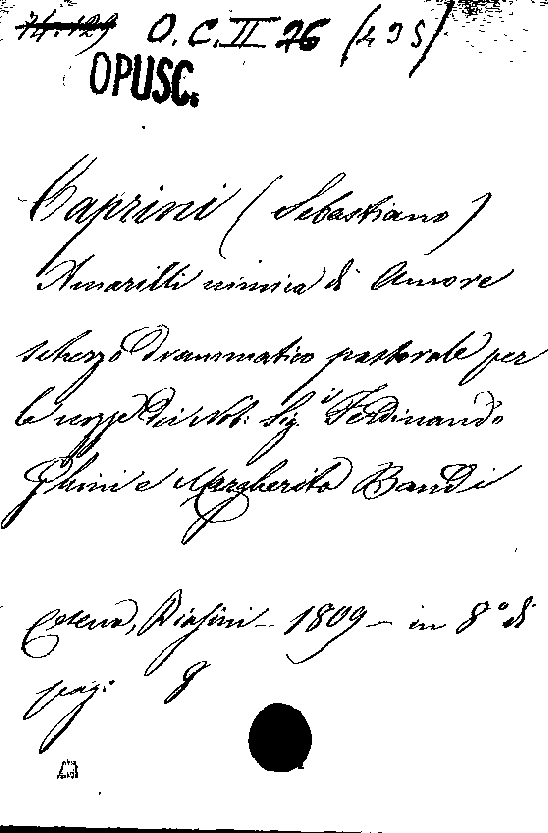 74.129 O. C. II 26 (23S)
OPUSC.
Caprini (Sebastiano)
Amarilli nimica di Amore
scherzo drammatico pastorale per
le nozze dei Nob: Sig.i Ferdinando
Ghini e Margherita Bandi
Cesena, Biasini - 1809 - in 8° di
pag: 8